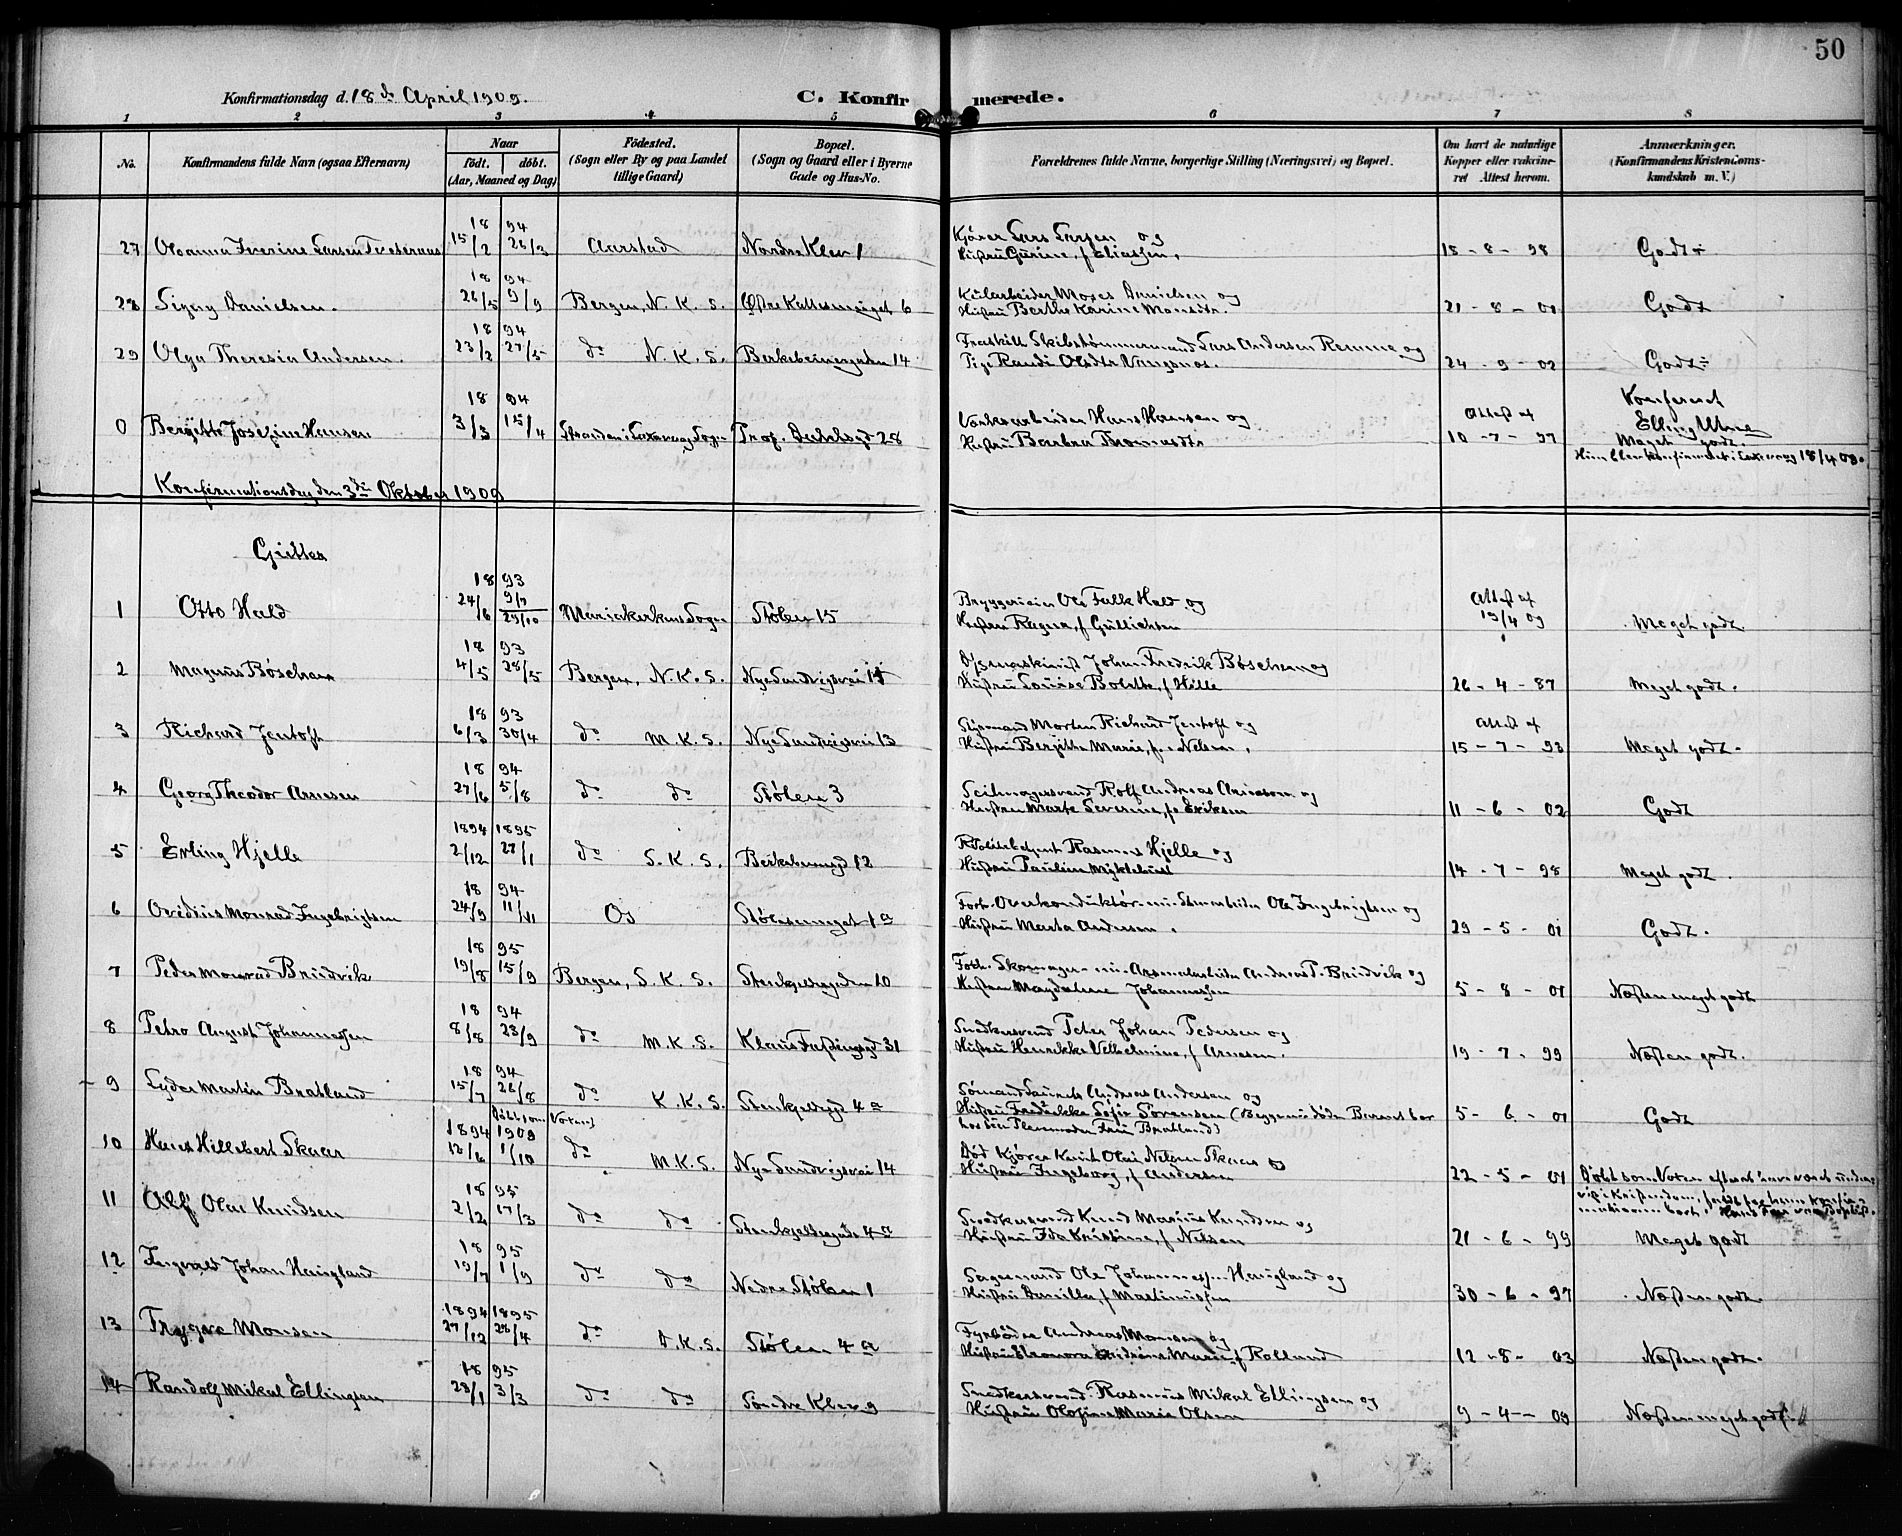 50
Konfirmationsdag d. 18de April 1909.
C. Konfirmerede.
1 2 3 4 5 6 7 8
No. Konfirmandens fulde Navn (ogsaa Efternavn)
Naar
födt. döbt.
(Aar, Maaned og Dag)
Födested.
(Sogn eller By og paa Landet
tillige Gaard)
Bopæl.
(Sogn og Gaard eller i Byerne
Gade og Hus-No.
Forældrenes fulde Navne, borgerlige Stilling (Næringsvei) og Bopæl.
Om havt de naturlige
Kopper eller vakcine-
ret Attest herom.
Anmærkninger.
(Konfirmandens Kristendoms-
kundskab m. V.)
18 94
27 Larsen 15/2 26/3 Aarstad Nordre Klev 1 Kjører Lars Larsen og
Hustru Gurine, f Eliassen. 18-8-98 Godt÷
18 94
28 Signy Danielsen. 26/5 9/9 Bergen, N. K. S. Østre 6 Moses Danielsen og
Hustru Berthe Karine Monsdtr. 21-8-01 Godt
18 94
29 Olga Theresia Andersen. 23/2 27/5 do N. K. S. Berkebeinergaden 14 Fraskilt Skibstømmermand Lars Andersen Remme og
Pige Randi Olsdtr Vangsnes. 24-9-02 Godt÷
18 94
0 Bergitte Josefine Hansen 3/3 15/4 Sogn Prof. 28 Hans Hansen og
Hustru Barbra Attest af
10-7-97 Konfereret
Elling
Meget godt.
Hun blev konfirmeret i 18/4 09.
Konfirmationsdag den 3die Oktober 1909
Gutter
18 93
1 Otto Hald 24/6 9/7 29/10 Mariakirkens Sogn Stølen 15 Bryggerieier Ole Falk Hald og
Hustru Ragna, f Gullichsen Attest af
19/4 09 Meget godt
18 93
2 Magnus Bøschen 4/5 28/5 Bergen, N. K. S. Nye Sandvigsvei Johan Fredrik Bøschen og
Hustru Louise Bolette, f Hille 26-4-87 Meget godt.
18 93
3 Richard Jentoft 6/3 30/4 do M. K. S. Nye Sandvigsvei 13 Styrmand Morten Richard Jentoft og
Hustru Berjitte Marie, f. Nilsen. Attest af
15-7-93 Meget godt.
18 94
4 Georg Theodor Arnesen 27/6 5/8 do do Stølen 3 Seilmagersvend Rolf Andreas og
Hustru Marte Severine, f. Eriksen 11-6-02 Godt
1894 1895
5 Erling Hjelle 2/12 27/1 do S. K. S. 12 Politibetjent Rasmus Hjelle og
Hustru Pauline Myklebust 14-7-98 Meget godt.
18 94
6 Ovidius Monrad Ingebrigtsen 24/9 11/11 Os 1a Forh. Overkonduktør Ole Ingebrigtsen og
Hustru Marta Andersen. 29-5-01 Godt.
18 95
7 Peder Monrad Brudvik 19/8 15/9 Bergen, S. K. S. Stenkjeldergaden 10 Forh. Skomager Andreas P. Brudvik og
Hustru Magdalene Johannessen 5-8-01 Næsten meget godt
18 94
8 Petro August Johannessen 8/8 23/9 do M. K. S. Klaus 31 Snedkersvend Peter Johan Pedersen og
Hustru Henrikke Vilhelmine, f Arnesen. 19-7-99 Næsten godt.
18 94
9 Lyder Martin Bratland 15/7 26/8 do K. K. S. 4a Sømand Andreas Andersen og
Hustru Fredrikke Sofie Sørensen (Begge døde Barnet bor
hos sin Pleiemoder Fru Bratland) 5-6-01 Godt
Døbt som Voksen
1894 1909
10 Hans Hillebert Skaar 12/6 1/10 do M. K. S. Nye Sandvigsvei 14 Død Kjører Knut Olai Nilsen Skaar og
Hustru Ingeborg, f Andersen 22-5-01 Døbt som Voksen
18 95
11 Alf Olai Knudsen 2/2 17/3 do do 4a Snedkersvend Knud Marius Knudsen og
Hustru Ida Kristine, f Nelsen 21-6-99 Meget godt
18 95
12 Johan Haugland 19/7 1/9 do do Nedre Stølen 1 Ole Johannessen Haugland og
Hustru f Martinussen 30-6-97 Næsten godt.
1894 1895
13 Trygve Monsen 27/12 28/4 do K. S. Stølen 4a Fyrbøder Andreas Monsen og
Hustru Eleonora Marie f Rolland 12-8-03 Næsten godt.
18 95
14 Randolf Mikal Ellingsen 28/1 3/3 do do Søndre Klev 9 Snedkersvend Rasmus Mikal Ellingsen og
Hustru Olofine Marie Olsen 9-4-09 Næsten meget godt.